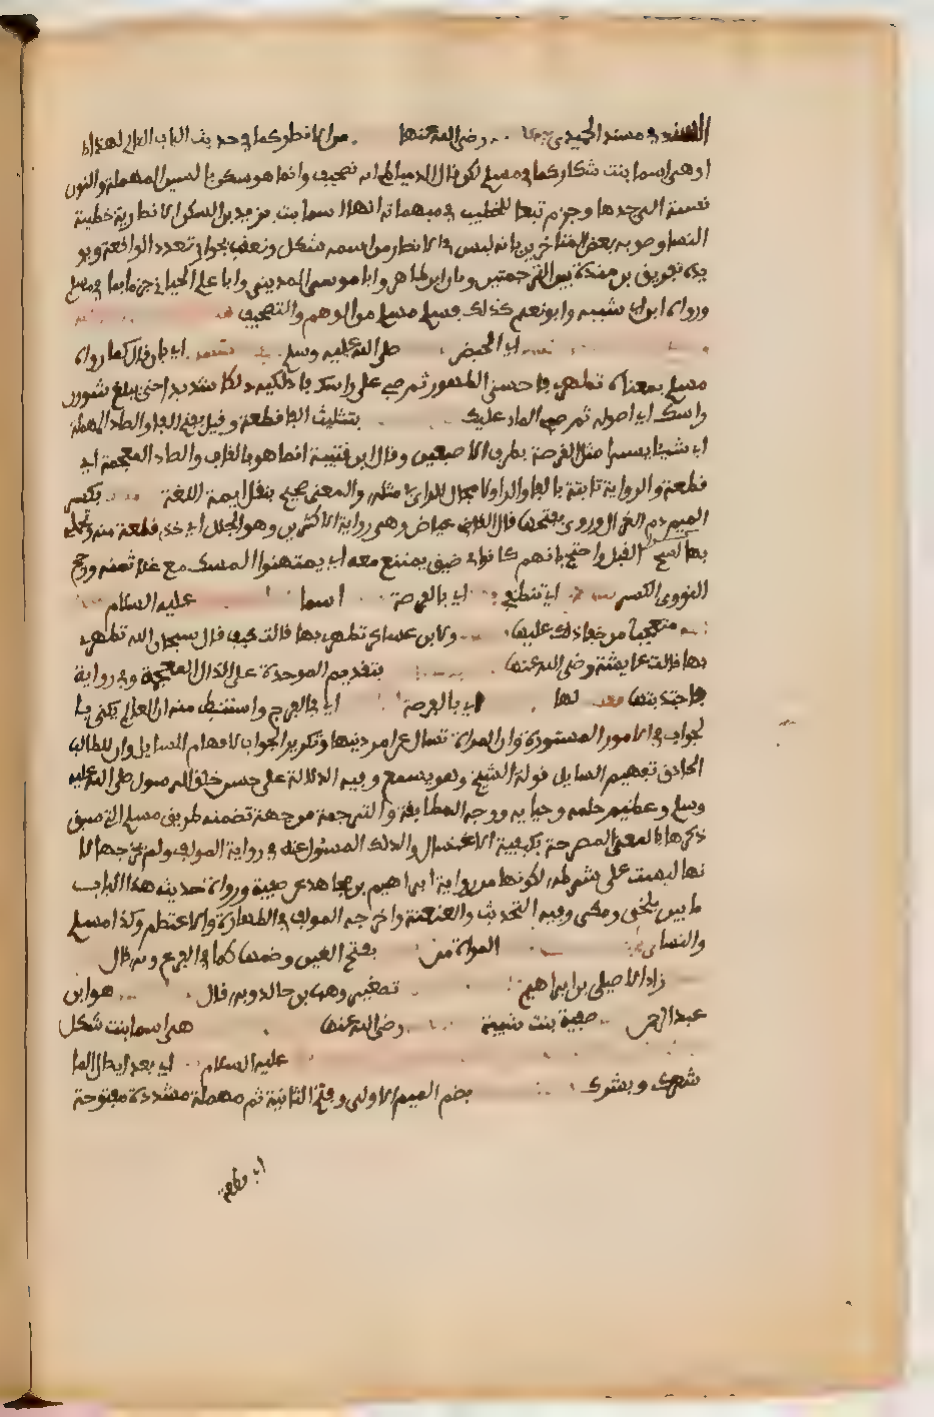 السند في مسند الحميدي رضي الله عنها من الانصار كما في حديث الباب التالي لهذا
او هي اسما بنت شكل كما في مسلم لكن قال الدمياطي انه تصحيف وانما هو سكن بالسين المهملة والنون
نسبة الى جدها وجزم تبعا للخطيب في مبهماته انها اسما بنت يزيد بن السكن الانصارية خطيبة
النسا وصوبه بعض المتاخرين بانه ليس في الانصار من اسمه شكل وتعقب بجواز تعدد الواقعة ويو
يده تفريق بن مندة بين الترجمتين وبان ابن طاهر وابا موسى المديني وابا علي الجياني جزموا بما في مسلم
ورواه ابن ابي شيبه وابو نعيم كذلك فسلم مسلم من الوهم والتصحيف
اي الحيض صلى الله عليه وسلم اي بان قال كما رواه
مسلم بمعناه تطهري فاحسني الطهور ثم صبي على راسك فادلكيه دلكا شديدا حتى يبلغ شوون
راسك اي اصوله ثم صبي الماء عليك بتثليث الفا قطعة وقيل بفتح الفا والصاد المهملة
اي شيئا يسيرا مثل القرصة بطرف الاصبعين وقال ابن قتيبة انما هو بالقاف والضاد المعجمة اي
قطعة والرواية ثابتة بالفا والصاد ولا مجال للراي في مثله والمعنى صحيح بنقل ايمة اللغة بكسر
الميم دم الغزال وروى بفتحها قال القاضي عياض وهي رواية الاكثرين وهو الجلد اي خذي قطعة منه وتحملي
بها لمسح القبل واحتج بانهم كانوا في ضيق يمتنع معه ان يمتهنوا المسك مع غلا ثمنه ورجح
النووي الكسر اي تنظفي اي بالفرصة اسما عليه السلام
متعجبا من خفا ذلك عليها ولابن عساكر تطهري بها قالت كيف قال سبحان الله تطهري
بها قالت عايشة رضي الله عنها بتقديم الموحدة على الذال المعجمة وفي رواية
فاجتذبتها لها اي بالفرصة اي في الفرج واستنبط منه ان العالم يكني با
لجواب في الامور المستورة وان المراة تسال عن امر دينها وتكرير الجواب لافهام السايل وان للطالب
الحاذق تفهيم السايل قول الشيخ وهو يسمع وفيه الدلالة على حسن خلق الرسول صلى الله عليه
وسلم وعظيم حلمه وحيايه ووجه المطابقة والترجمة من جهة تضمنه طريق مسلم التي سبق
ذكرها بالمعنى المصرحة بكيفية الاغتسال والدلك المسئول عنه في رواية المولف ولم يخرجها لا
نها ليست على شرطه لكونها من رواية ابراهيم بن مهاجر عن صفية ورواة حديث هذا الباب
ما بين بلخي ومكي وفيه التحديث والعنعنة واخرجه المولف في الطهارة والاعتصام وكذا مسلم
والنسائي المراة من بفتح الغين وضمها كما في الفرع وبه قال
زاد الاصيلي بن ابراهيم تصغير وهب بن خالد وبه قال هو ابن
عبد الرحمن صفية بنت شيبة رضي الله عنها هي اسما بنت شكل
عليه السلام اي بعد ايصال الما
شعرك وبشرك بضم الميم الاولى وفتح الثانية ثم مهملة مشددة مفتوحة
اي قطعة